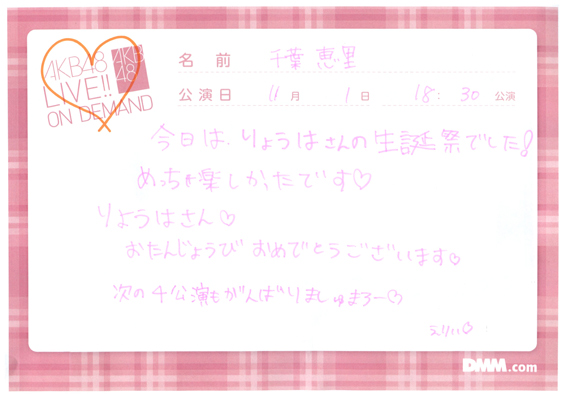 AKB48
LIVE!!
ON DEMAND
AKB
48
名前 千葉 恵里
公演日 11月 1日 18:30 公演
今日は、りょうはさんの生誕祭でした!
めっちゃ楽しかたです♡
りょうはさん♡
おたんじょうび おめでとうございます♡
次の4公演もがんばりましゅまろー♡
えりい♡
DMM.com